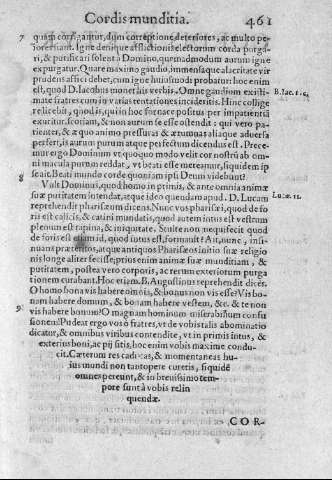 Cordis munditia. 461
7 quam corrigantur, dum correptione deteriores, ac multo pe-
iores fiant. Igne denique afflictionis electorum corda purga-
ri, & purificari solent à Domino, quemadmodum aurum igne
expurgatur. Quare maximo gaudio, immensaque alacritate vir
prudens affici debet, cum igne huiusmodi probatur: hoc enim
est, quod D. Iacobus monet his verbis. Omne gaudium existi- B. Iac. 1. c.
mate fratres cum in varias tentationes incideritis. Hinc collige
relicebit, quod is, qui in hoc fornace positus per impatientiã
exuritur, scoriam, & non aurum se esse ostendit: qui vero pa-
tienter, & æquo animo pressuras & ærumnas aliaque aduersa
perfert, is aurum purum atque perfectum dicendus est. Prece-
mur ergo Dominum vt quoquo modo velit cor nostrũ ab om-
ni macula purum reddat, vt beati esse mereamur, siquidem ip
se ait. Beati mundo corde quoniam ipsi Deum videbunt?
8 Vult Dominus, quod homo in primis, & ante omnia animæ
suæ puritatem intendat, atque ideo quendam apud. D. Lucam Lucæ. 11.
reprehendit pharisæum dicens. Nunc vos pharisæi, quod de fo
ris est calicis, & catini mundatis, quod autem intus est vestrum
plenum est rapina, & iniquitate. Stulte nonne qui fecit quod
de foris est id, quod intus est, fecit? Ait, nunc, insi-
nuans præteritos, atque antiquos Phariseos initio suæ religio
nis longe aliter fecisse, prius enim animæ suæ munditiam, &
puritatem, postea vero corporis, ac rerum exteriorum purga
tionem curabant. Hoc etiam. B. Augustinus reprehendit dicẽs.
O homo bona vis habere omnia, & bonus non vis esse? Vis bo-
nam habere domum, & bonam habere vestem, &c. & te non
9 vis habere bonum? O magnam hominum miserabilium confu
sionem! Pudeat ergo vos ô fratres, vt de vobis talis abominatio
dicatur, & omnibus viribus contendite, vt in primis intus, &
exterius boni, ac pij sitis, hoc enim vobis maxime condu-
cit. Cæterum res caducas, & momentaneas hu-
ius mundi non tantopere curetis, siquidẽ
omnes pereunt, & in breuissimo tem-
pore sunt à vobis relin
quendæ.
COR-